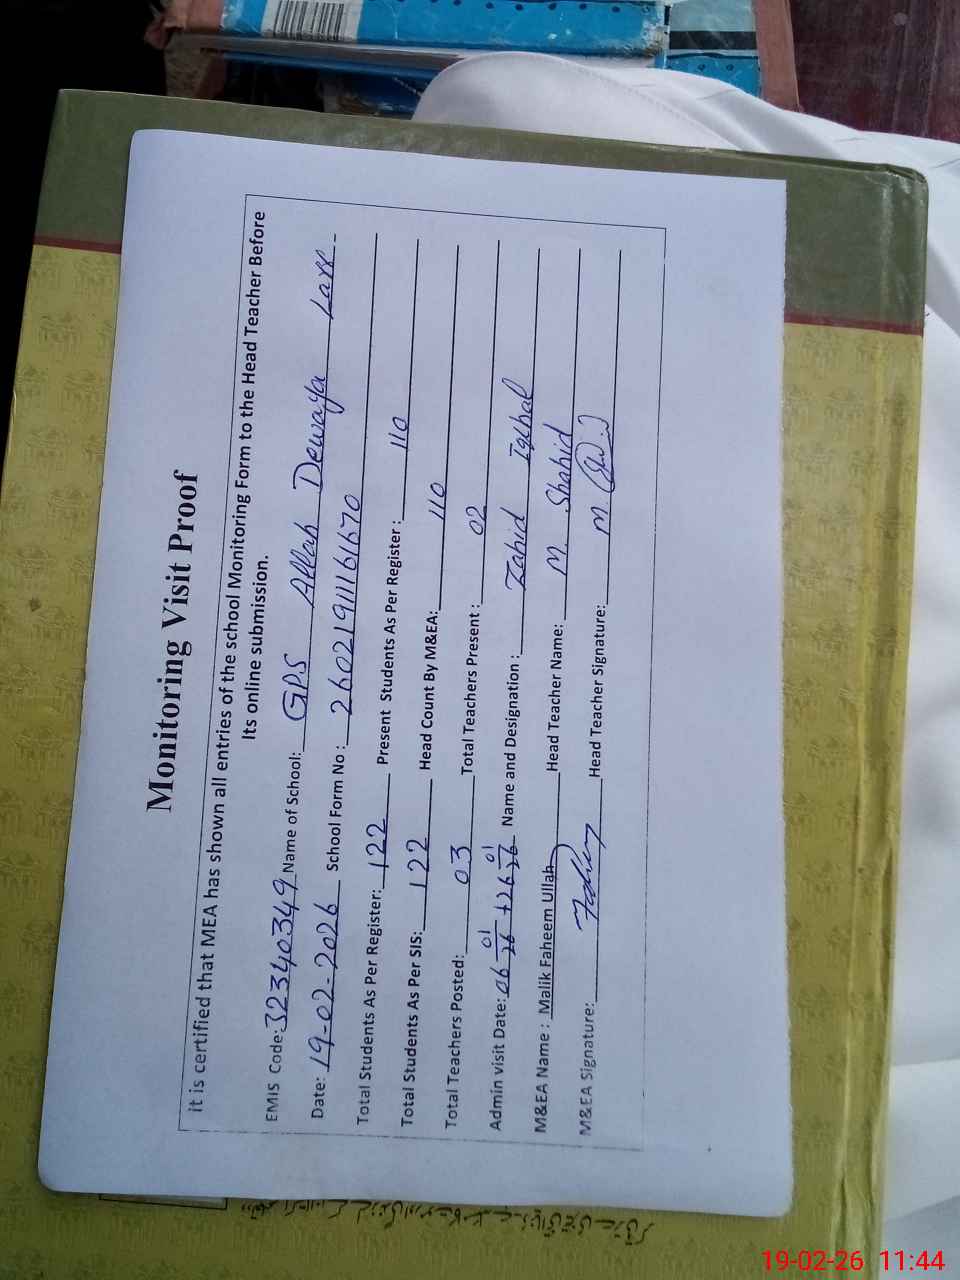 Monitoring Visit Proof
it is certified that MEA has shown all entries of the school Monitoring Form to the Head Teacher Before
Its online submission.
EMIS Code: 32340349 Name of School: GPS Allah Dewaya Larr
Date: 19-02-2026 School Form No : 2602191116 1670
Total Students As Per Register: 122 Present Students As Per Register : 110
Total Students As Per SIS: 122 Head Count By M&EA: 110
Total Teachers Posted: 03 Total Teachers Present : 02
Admin visit Date: 06 01/26 + 26 01/26 Name and Designation : Zahid Iqbal
M&EA Name : Malik Faheem Ullah Head Teacher Name: M. Shahid
M&EA Signature: Head Teacher Signature: M
19-02-26 11:44